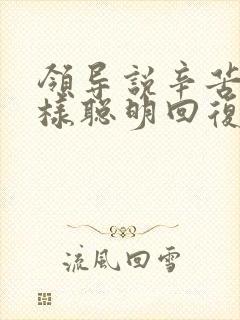 領导説辛苦
樣聰明回復
流風回雪